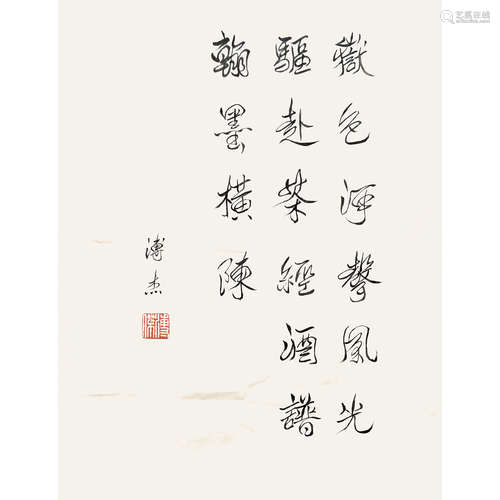 嶽色河聲風光
驅赴茶經酒譜
翰墨橫陳
溥杰
艺狐在线